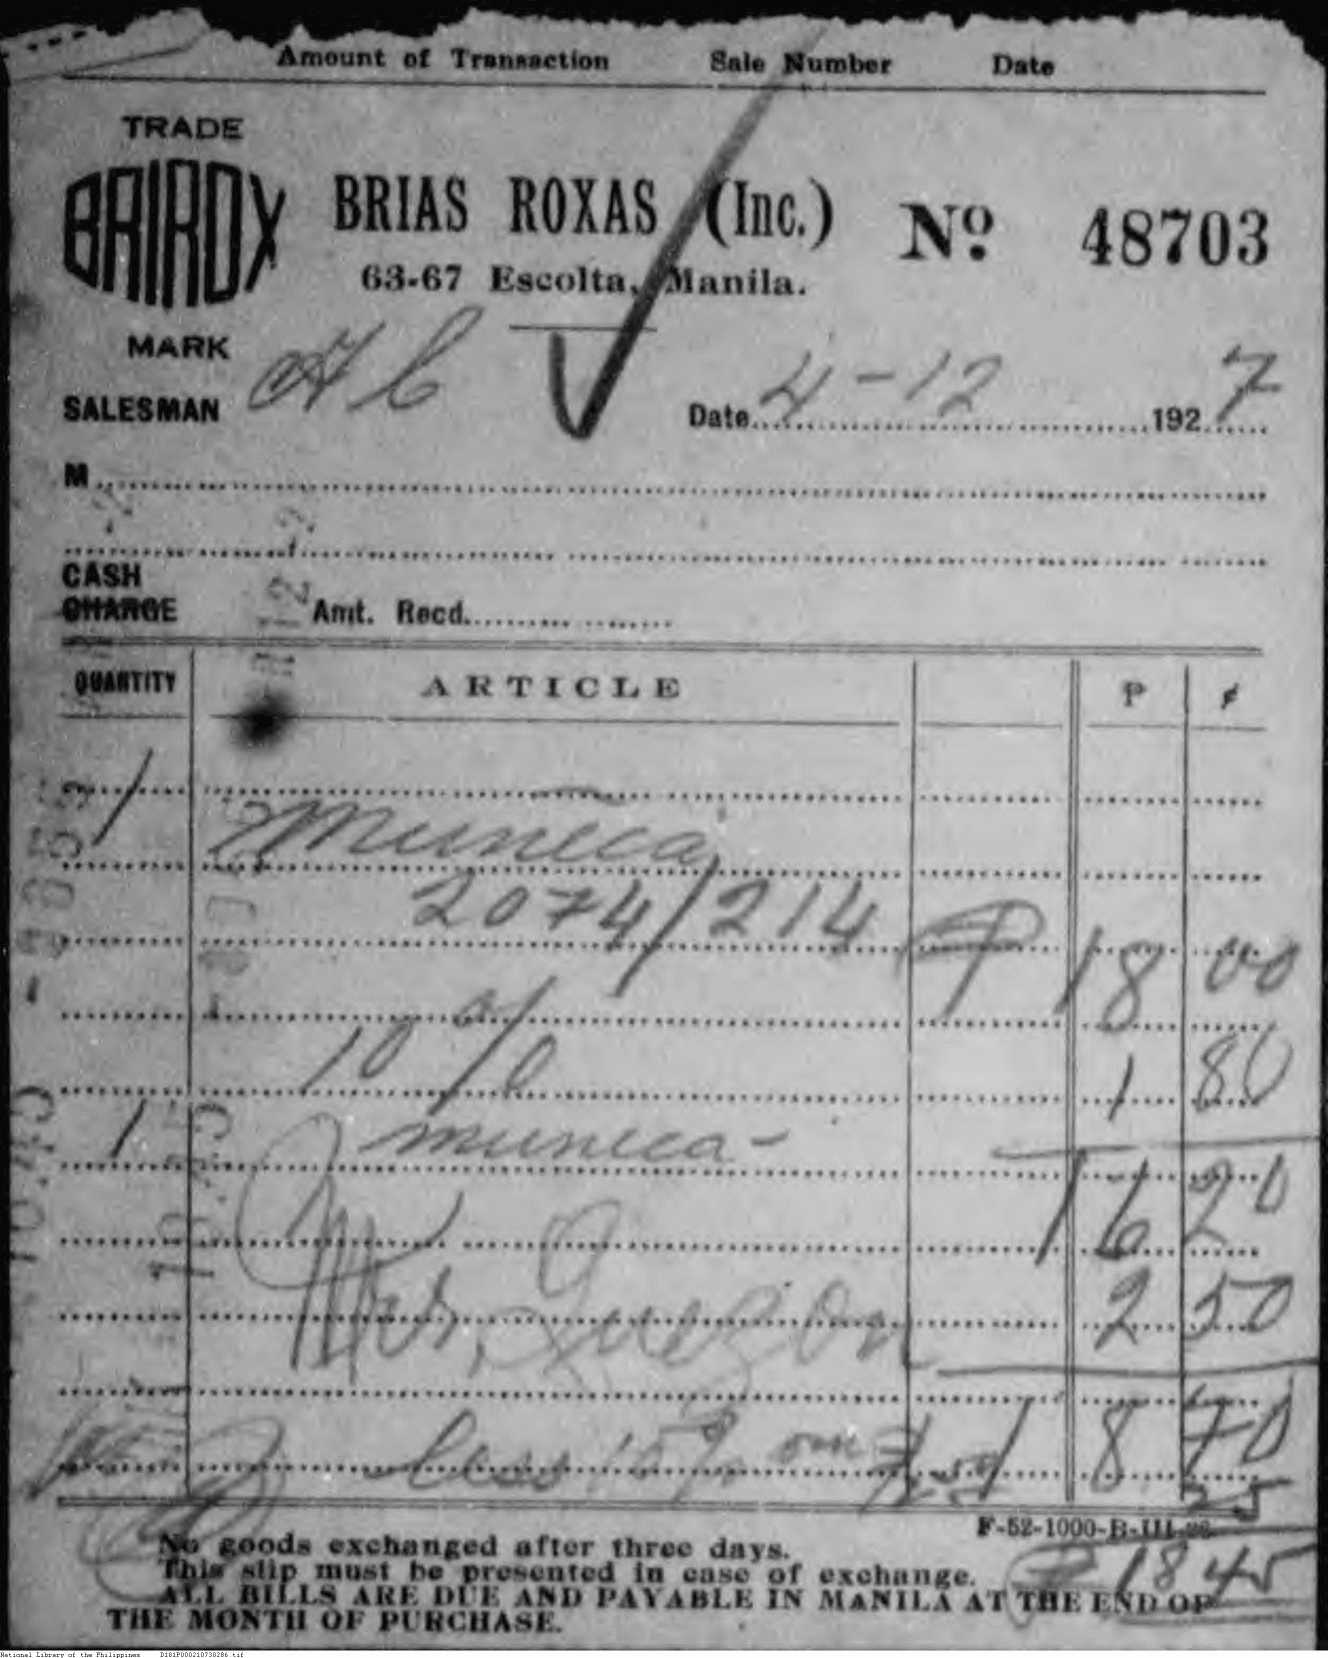 Amount of Transaction Sale Number Date
TRADE
BRIROX
MARK
BRIAS ROXAS (Inc.)
Nº 48703
63-67 Escolta, Manila.
SALESMAN
Date 4-12 1927
M
CASH
CHARGE
Amt. Recd.
QUANTITY ARTICLE P ¢
1 Muneca
2074/214 P 18 00
10 % 1 80
1 muneca - 16 20
Mrs. Quezon 2 50
Less 10 % on 2.50 18 70
25
F-52-1000-B-III-26
No goods exchanged after three days.
18 45
This slip must be presented in case of exchange.
ALL BILLS ARE DUE AND PAYABLE IN MANILA AT THE END OF
THE MONTH OF PURCHASE.
National Library of the Philippines D181P000210738286.tif